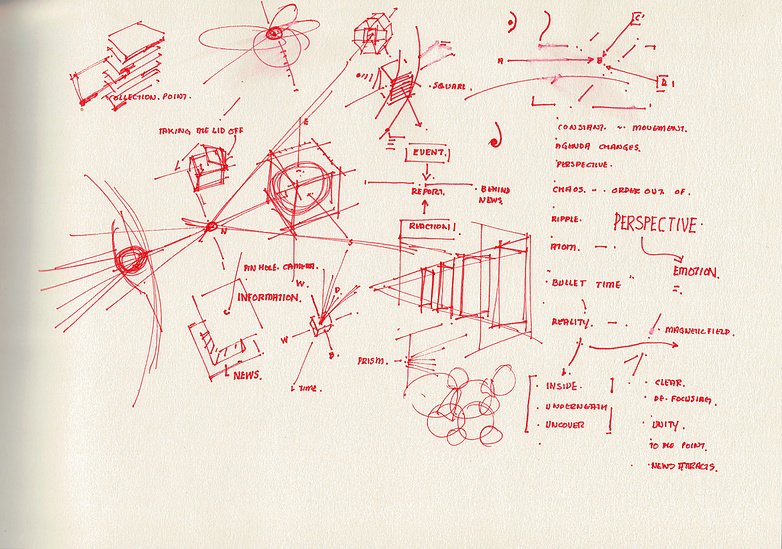 COLLECTION. POINT.
TAKING THE LID OFF
SQUARE.
A
B
C
CONSTANT. MOVEMENT.
AGENDA CHANGES.
PERSPECTIVE.
CHAOS. ORDER OUT OF.
RIPPLE.
ATOM.
"BULLET TIME"
REALITY.
PERSPECTIVE.
EMOTION.
MAGNETIC FIELD.
EVENT.
REPORT.
BEHIND
NEWS.
REACTION!
E
N
S
W.
PIN HOLE. CAMERA.
INFORMATION.
NEWS.
W
D.
B.
TIME.
PRISM.
INSIDE.
UNDERNEATH
UNCOVER
CLEAR.
DE-FOCUSING.
UNITY.
TO THE POINT.
NEWS ATTRACTS.